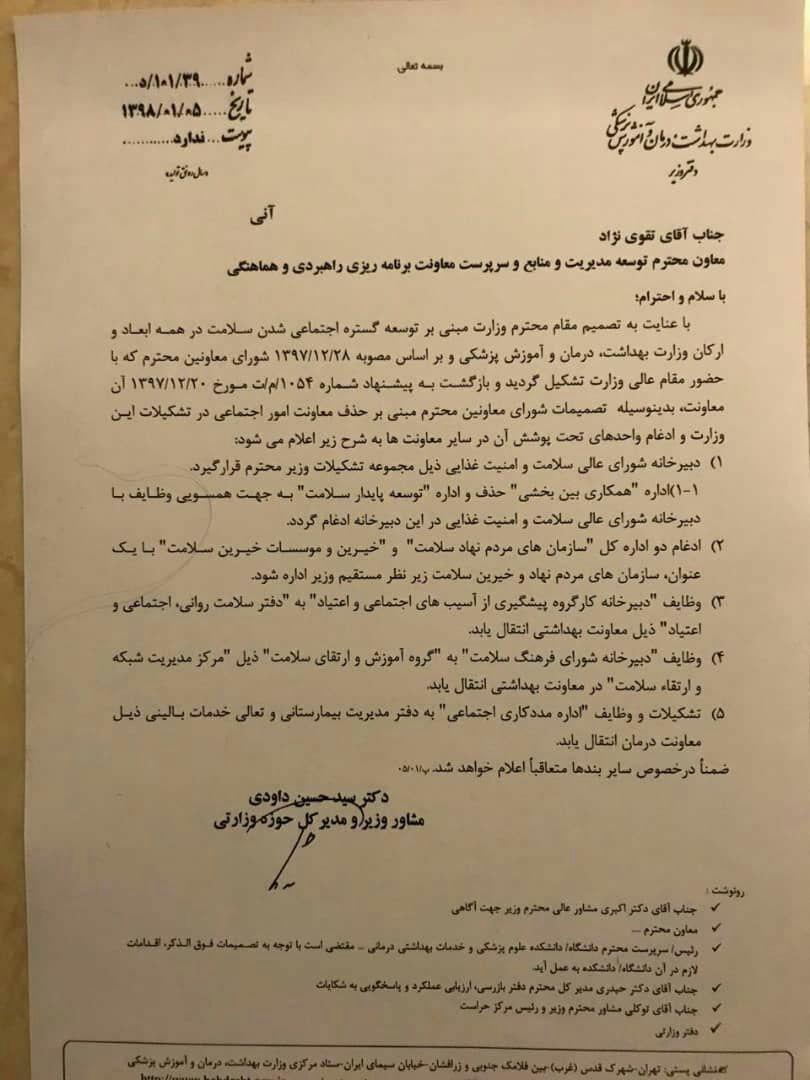 بسمه تعالی
جمهوری اسلامی ایران
وزارت بهداشت، درمان و آموزش پزشکی
دفتر وزیر
شماره......۱۰۱/۳۹/د...
تاریخ.....۱۳۹۸/۰۱/۰۵
پیوست... ندارد............
«سال رونق تولید»
آنی
جناب آقای تقوی نژاد
معاون محترم توسعه مدیریت و منابع و سرپرست معاونت برنامه ریزی راهبردی و هماهنگی
با سلام و احترام؛
با عنایت به تصمیم مقام محترم وزارت مبنی بر توسعه گستره اجتماعی شدن سلامت در همه ابعاد و
ارکان وزارت بهداشت، درمان و آموزش پزشکی و بر اساس مصوبه ۱۳۹۷/۱۲/۲۸ شورای معاونین محترم که با
حضور مقام عالی وزارت تشکیل گردید و بازگشت به پیشنهاد شماره ۱۰۵۴/م/ت مورخ ۱۳۹۷/۱۲/۲۰ آن
معاونت، بدینوسیله تصمیمات شورای معاونین محترم مبنی بر حذف معاونت امور اجتماعی در تشکیلات این
وزارت و ادغام واحدهای تحت پوشش آن در سایر معاونت ها به شرح زیر اعلام می شود:
۱) دبیرخانه شورای عالی سلامت و امنیت غذایی ذیل مجموعه تشکیلات وزیر محترم قرارگیرد.
۱-۱)اداره "همکاری بین بخشی" حذف و اداره "توسعه پایدار سلامت" به جهت همسویی وظایف با
دبیرخانه شورای عالی سلامت و امنیت غذایی در این دبیرخانه ادغام گردد.
۲) ادغام دو اداره کل "سازمان های مردم نهاد سلامت" و "خیرین و موسسات خیرین سلامت" با یک
عنوان، سازمان های مردم نهاد و خیرین سلامت زیر نظر مستقیم وزیر اداره شود.
۳) وظایف "دبیرخانه کارگروه پیشگیری از آسیب های اجتماعی و اعتیاد" به "دفتر سلامت روانی، اجتماعی و
اعتیاد" ذیل معاونت بهداشتی انتقال یابد.
۴) وظایف "دبیرخانه شورای فرهنگ سلامت" به "گروه آموزش و ارتقای سلامت" ذیل "مرکز مدیریت شبکه
و ارتقاء سلامت" در معاونت بهداشتی انتقال یابد.
۵) تشکیلات و وظایف "اداره مددکاری اجتماعی" به دفتر مدیریت بیمارستانی و تعالی خدمات بالینی ذیل
معاونت درمان انتقال یابد.
ضمناً درخصوص سایر بندها متعاقباً اعلام خواهد شد. ب/۰۵/۰۱
دکتر سید حسین داودی
مشاور وزیر و مدیر کل حوزه وزارتی
رونوشت :
✓ جناب آقای دکتر اکبری مشاور عالی محترم وزیر جهت آگاهی
✓ معاون محترم ....
✓ رئیس/ سرپرست محترم دانشگاه/ دانشکده علوم پزشکی و خدمات بهداشتی درمانی ... مقتضی است با توجه به تصمیمات فوق الذکر، اقدامات
لازم در آن دانشگاه/ دانشکده به عمل آید.
✓ جناب آقای دکتر حیدری مدیر کل محترم دفتر بازرسی، ارزیابی عملکرد و پاسخگویی به شکایات
✓ جناب آقای توکلی مشاور محترم وزیر و رئیس مرکز حراست
✓ دفتر وزارتی
نشانی پستی: تهران-شهرک قدس (غرب)-بین فلامک جنوبی و زرافشان-خیابان سیمای ایران-ستاد مرکزی وزارت بهداشت، درمان و آموزش پزشکی